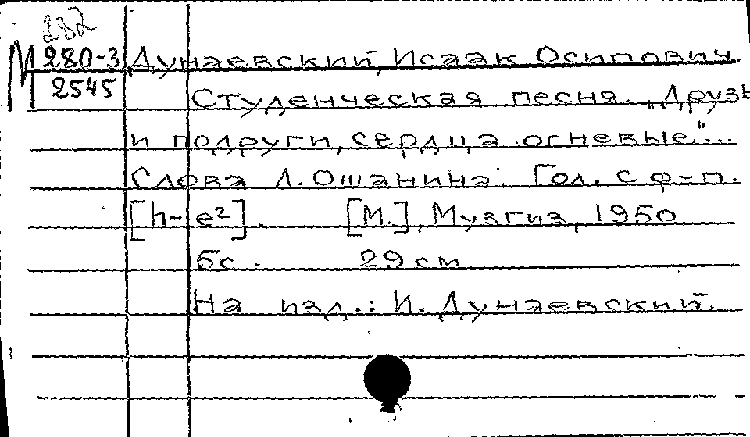 232
М 280-3 Дунаевский, Исаак Осипович.
2545 Студенческая песня. „Друзь
и подруги, сердца огневые"...
Слова Л. Ошанина. Гол. с ф-п.
[h-e²]. [М.], Музгиз, 1950
6с. 29 см
На изд.: И. Дунаевский.